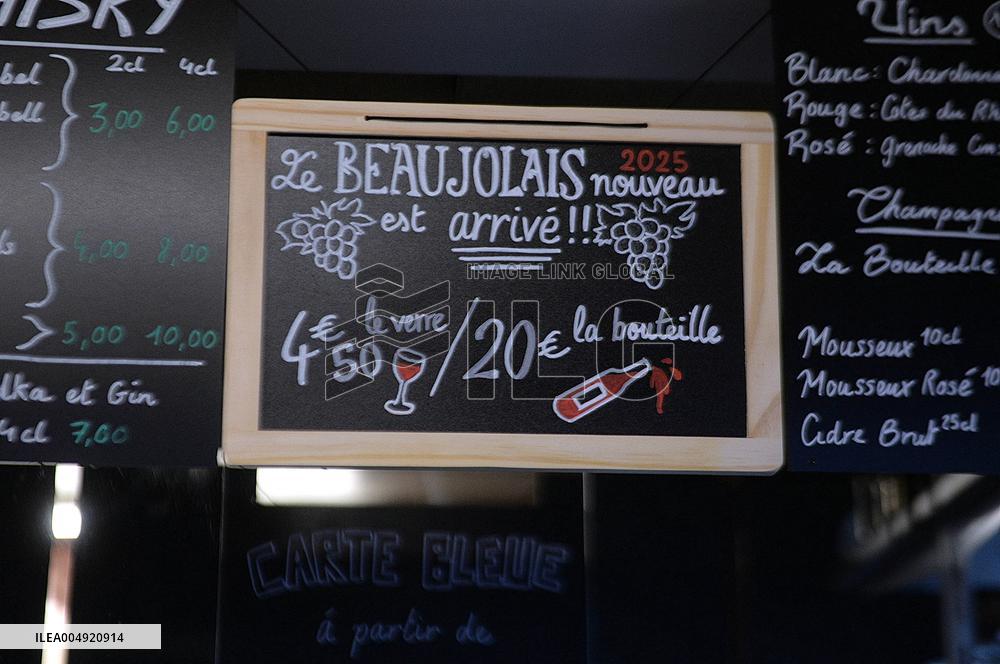 HISKY
2cl 4cl
bel
bell
3,00 6,00
4,00 8,00
5,00 10,00
dka et Gin
4cl 7,00
2025
Le BEAUJOLAIS nouveau
est arrivé !!
4€50 le verre / 20€ la bouteille
Vins
Blanc : Chardonn
Rouge : Côtes du Rh
Rosé : Grenache Cins
Champagn
La Bouteille
Mousseux 10cl
Mousseux Rosé 10
Cidre Brut 25cl
CARTE BLEUE
à partir de
IMAGE LINK GLOBAL
ILG
ILEA004920914